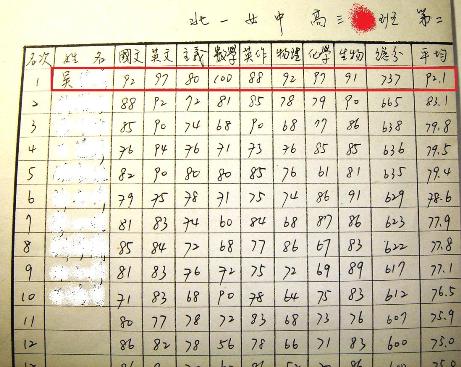 北一女中 高三 班 第二
名次 姓名 國文 英文 主義 數學 英作 物理 化學 生物 總分 平均
1 吳 92 97 80 100 88 92 97 91 737 92.1
2 88 92 72 81 85 78 79 90 665 83.1
3 85 90 74 68 90 68 77 86 638 79.8
4 76 94 76 71 73 76 85 85 636 79.5
5 82 90 80 80 85 76 61 81 635 79.4
6 79 75 78 71 75 74 86 91 629 78.6
7 81 83 74 60 84 68 87 86 623 77.9
8 85 84 72 68 77 86 67 83 622 77.8
9 81 83 76 72 75 72 69 89 617 77.1
10 71 83 68 90 78 64 75 83 612 76.5
11 80 77 78 72 83 68 73 76 607 75.9
12 86 82 78 56 78 66 71 83 600 75.0